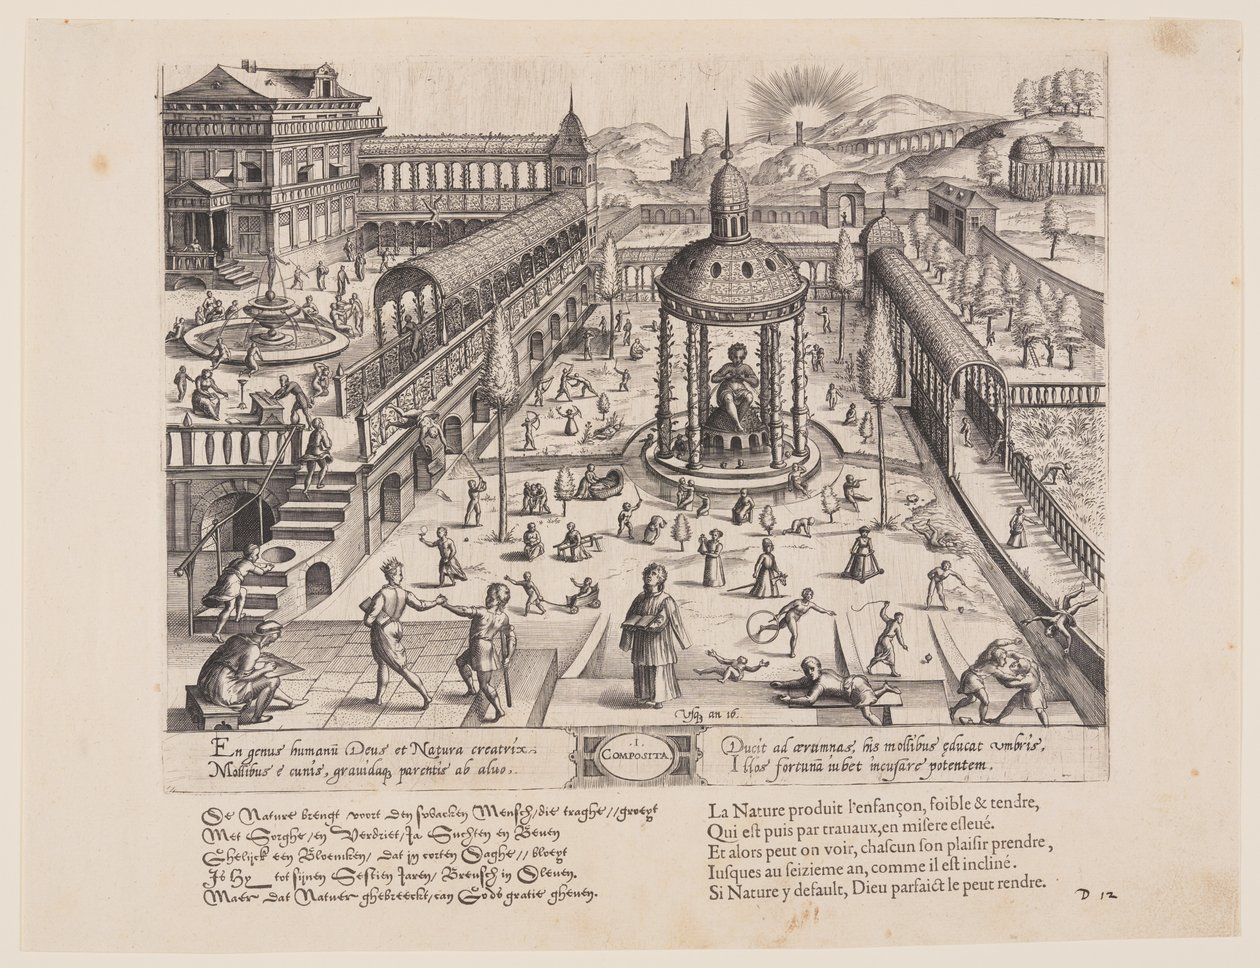 Usq, an 16.
En genus humanū Deus et Natura creatrix:
Mollibus è cunis, grauidaq parentis ab aluo,
.I.
COMPOSITA.
Ducit ad ærumnas, his mollibus educat vmbris,
Illos fortunā iubet incusare potentem.
De Nature brengt voort den swacken Mensch/die traghe//groeyt
Met Sorghe/en Verdriet/Ja Suchten en Beuen
Ghelijck een Bloemken/ dat in corten Daghe// bloeyt
Is Hy tot sijnen Sestien Jaren/ Breusch in Sleuen.
Maer dat Natuer ghebreeckt/can Gods gratie gheuen.
La Nature produit l'enfançon, foible & tendre,
Qui est puis par trauaux, en misere esleué.
Et alors peut on voir, chascun son plaisir prendre,
Iusques au seizieme an, comme il est incliné.
Si Nature y default, Dieu parfaict le peut rendre.
D 12